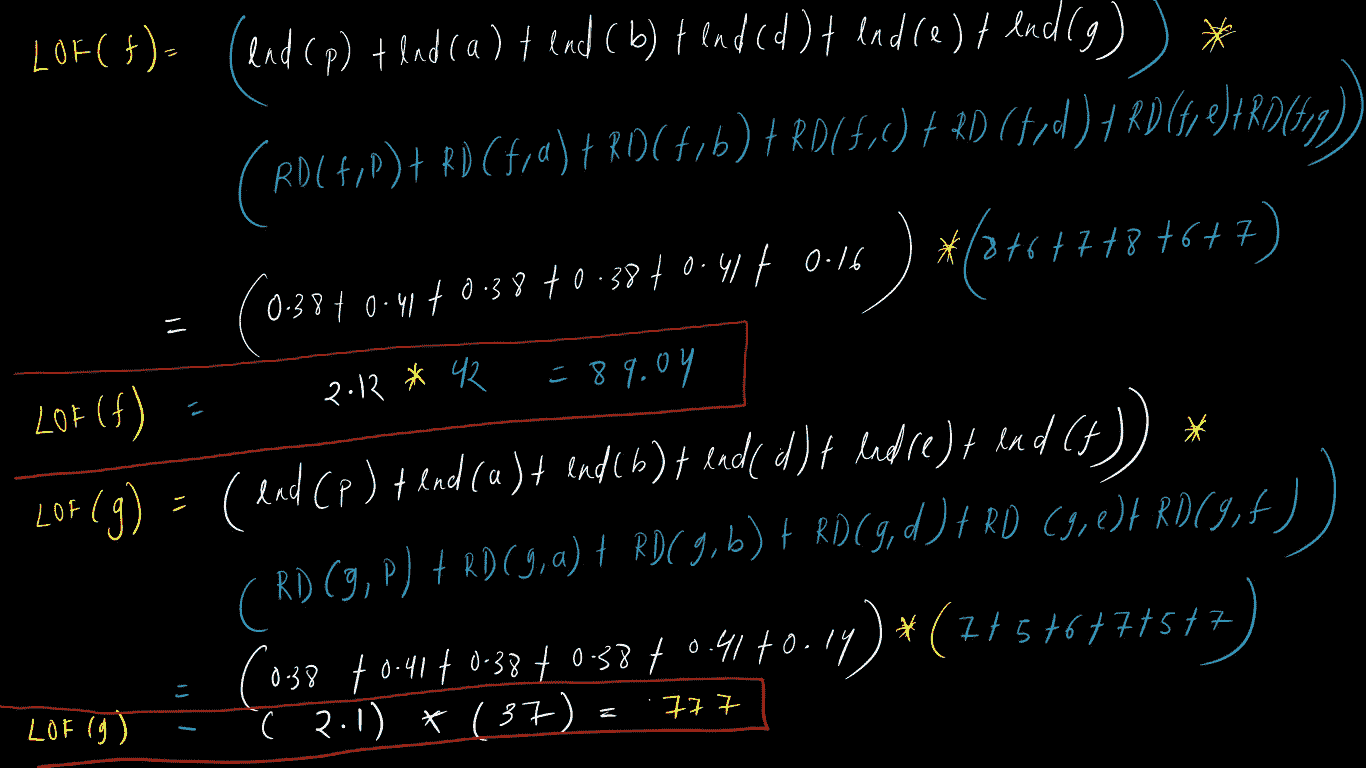 LOF(f) = (lrd(p) + lrd(a) + lrd(b) + lrd(d) + lrd(e) + lrd(g)) *
(RD(f,P) + RD(f,a) + RD(f,b) + RD(f,c) + RD(f,d) + RD(f,e) + RD(f,g))
= (0.38 + 0.41 + 0.38 + 0.38 + 0.41 + 0.16) * (8+6+7+8+6+7)
LOF(f) = 2.12 * 42 = 89.04
LOF(g) = (lrd(p) + lrd(a) + lrd(b) + lrd(d) + lrd(e) + lrd(f)) *
(RD(g,P) + RD(g,a) + RD(g,b) + RD(g,d) + RD(g,e) + RD(g,f))
= (0.38 + 0.41 + 0.38 + 0.38 + 0.41 + 0.14) * (7+5+6+7+5+7)
LOF(g) - (2.1) * (37) = 77.7